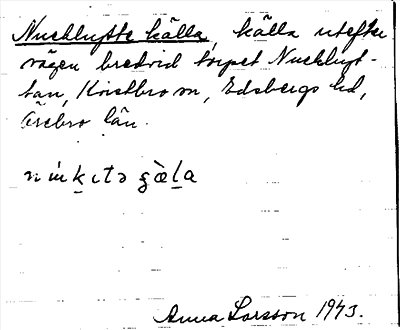 Nuckluftte källa, källa utefter
vägen bredvid torpet Nuckluft-
tan, Kvistbro sn, Edsbergs hd,
Örebro län.
Anna Larsson 1943.